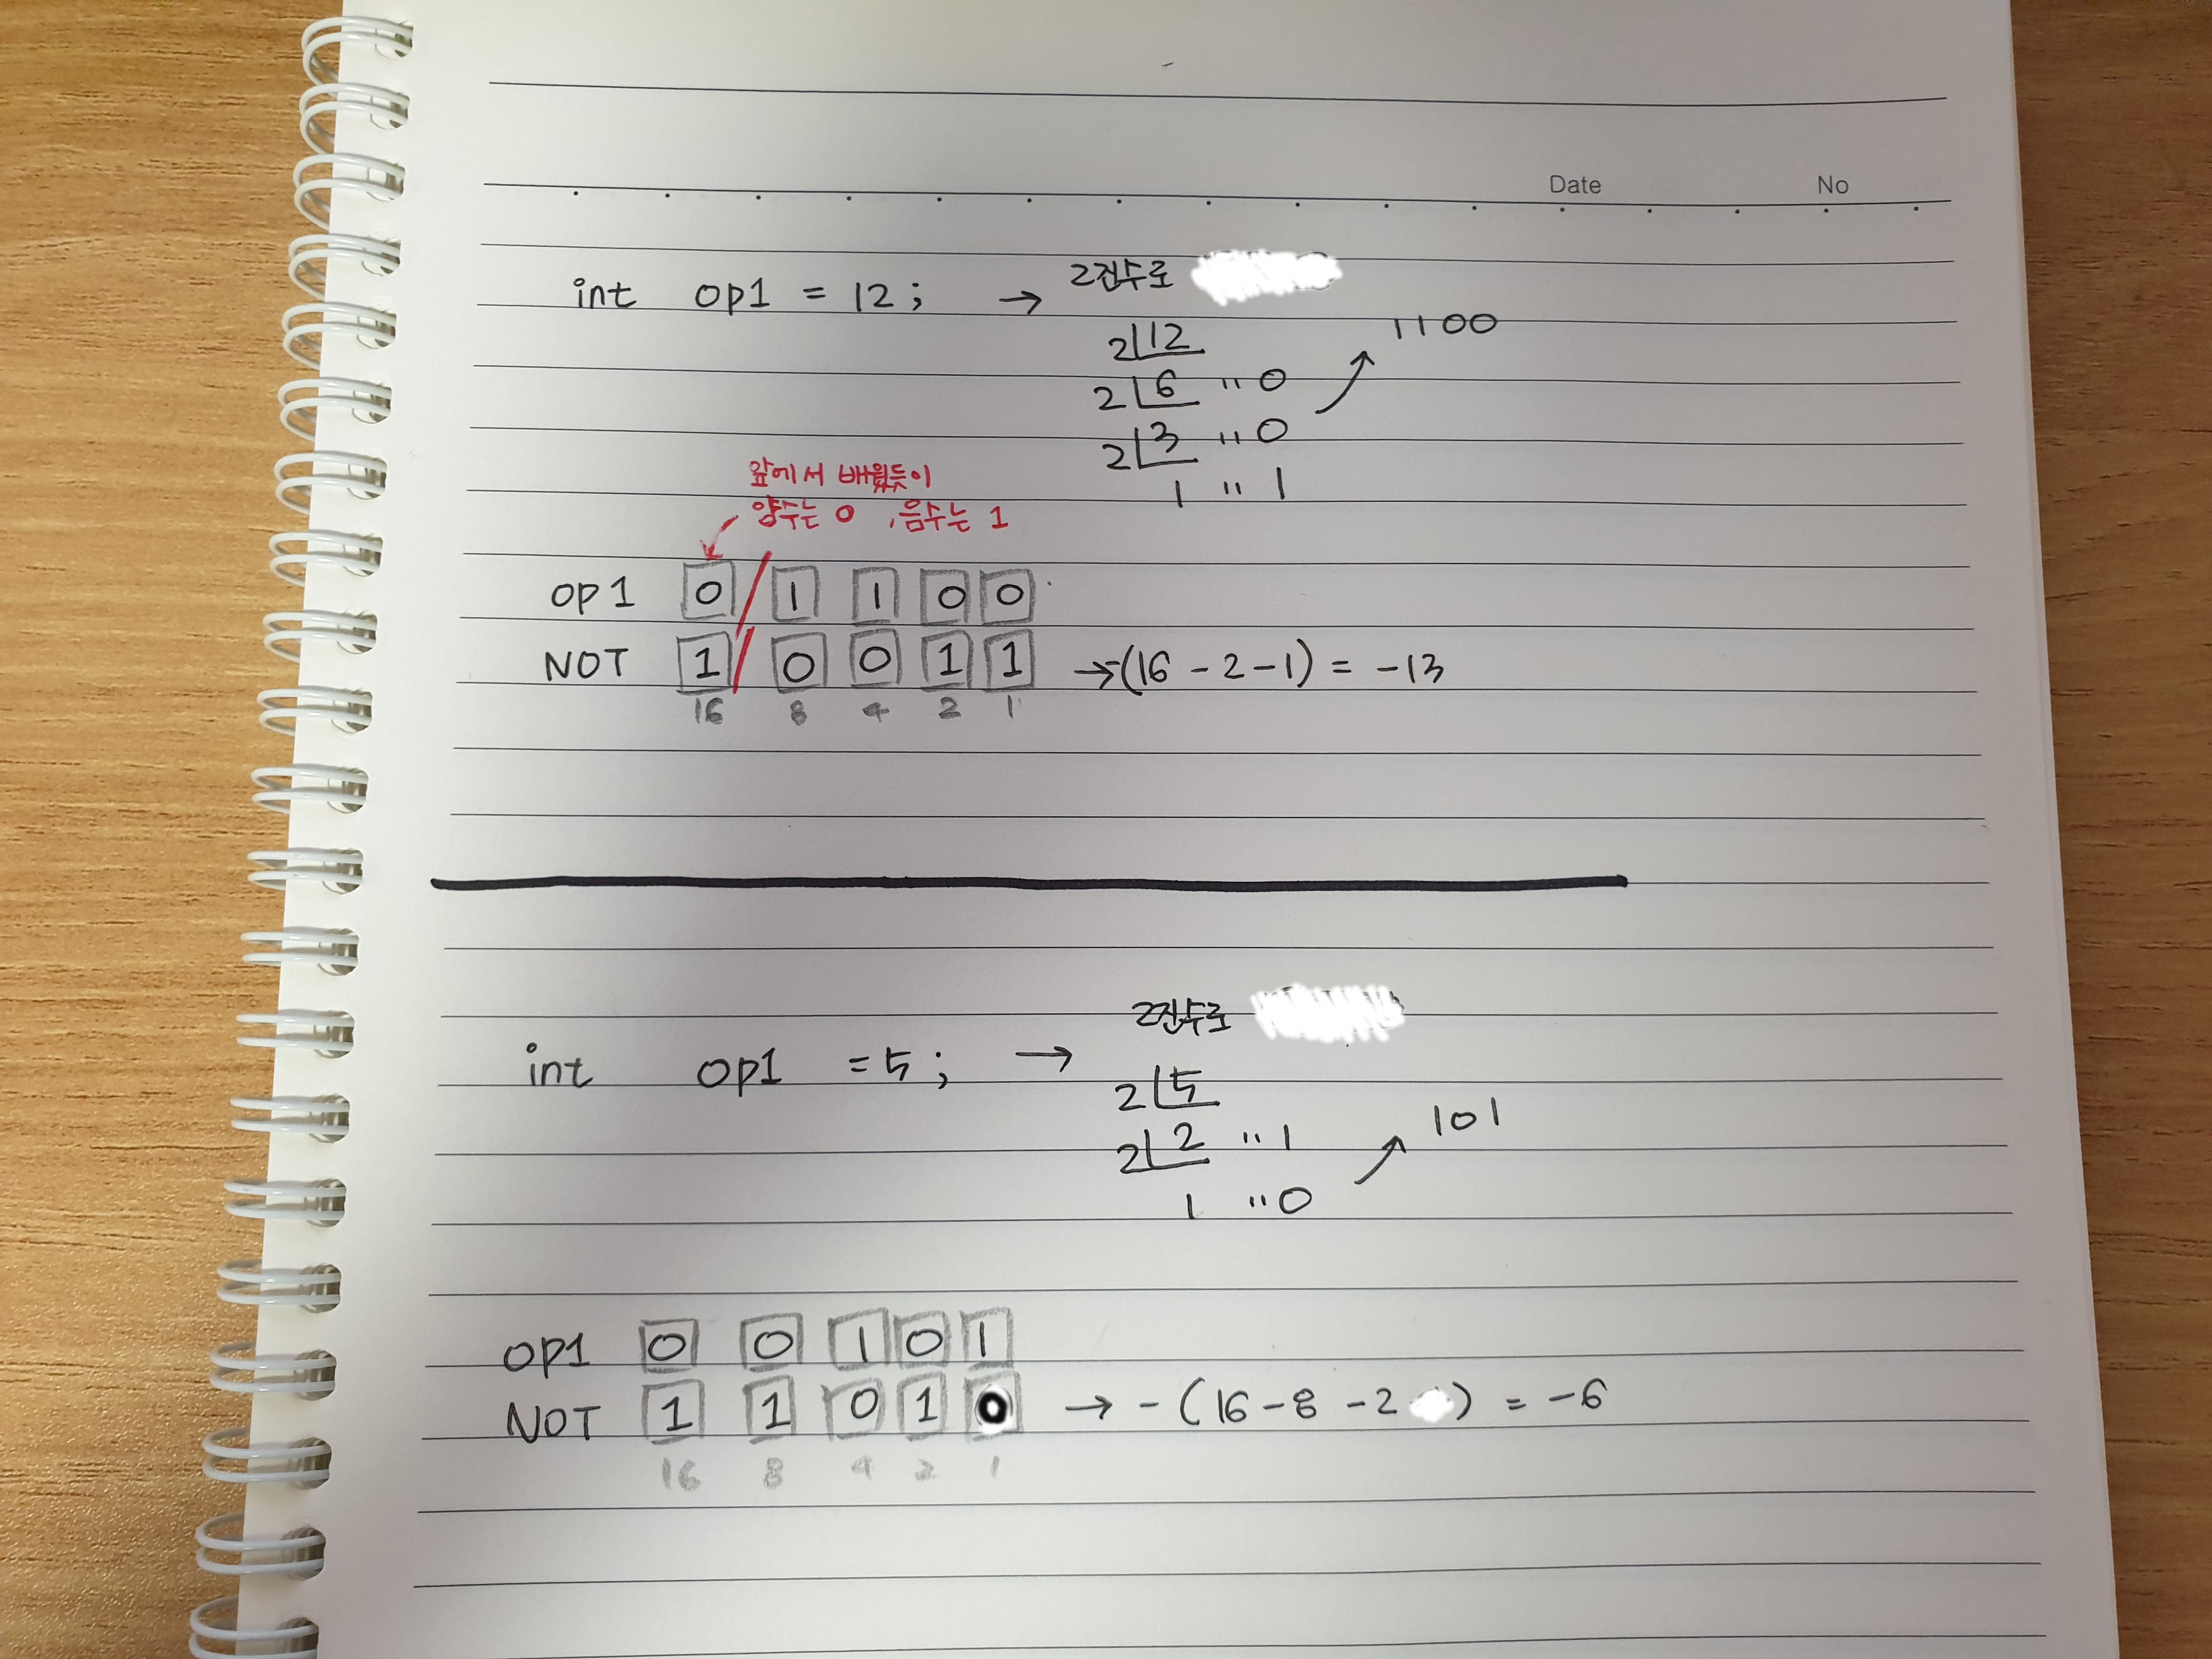 Date No
int op1 = 12; → 2진수로
2 12
2 6 ‥ 0
2 3 ‥ 0
1 ‥ 1
1100
앞에서 배웠듯이
양수는 0, 음수는 1
OP1 0 / 1 1 0 0
NOT 1 / 0 0 1 1 → -(16 - 2 - 1) = -13
16 8 4 2 1
int op1 = 5; → 2진수로
2 5
2 2 ‥ 1
1 ‥ 0
101
OP1 0 0 1 0 1
NOT 1 1 0 1 0 → - (16 - 8 - 2 ) = -6
16 8 4 2 1